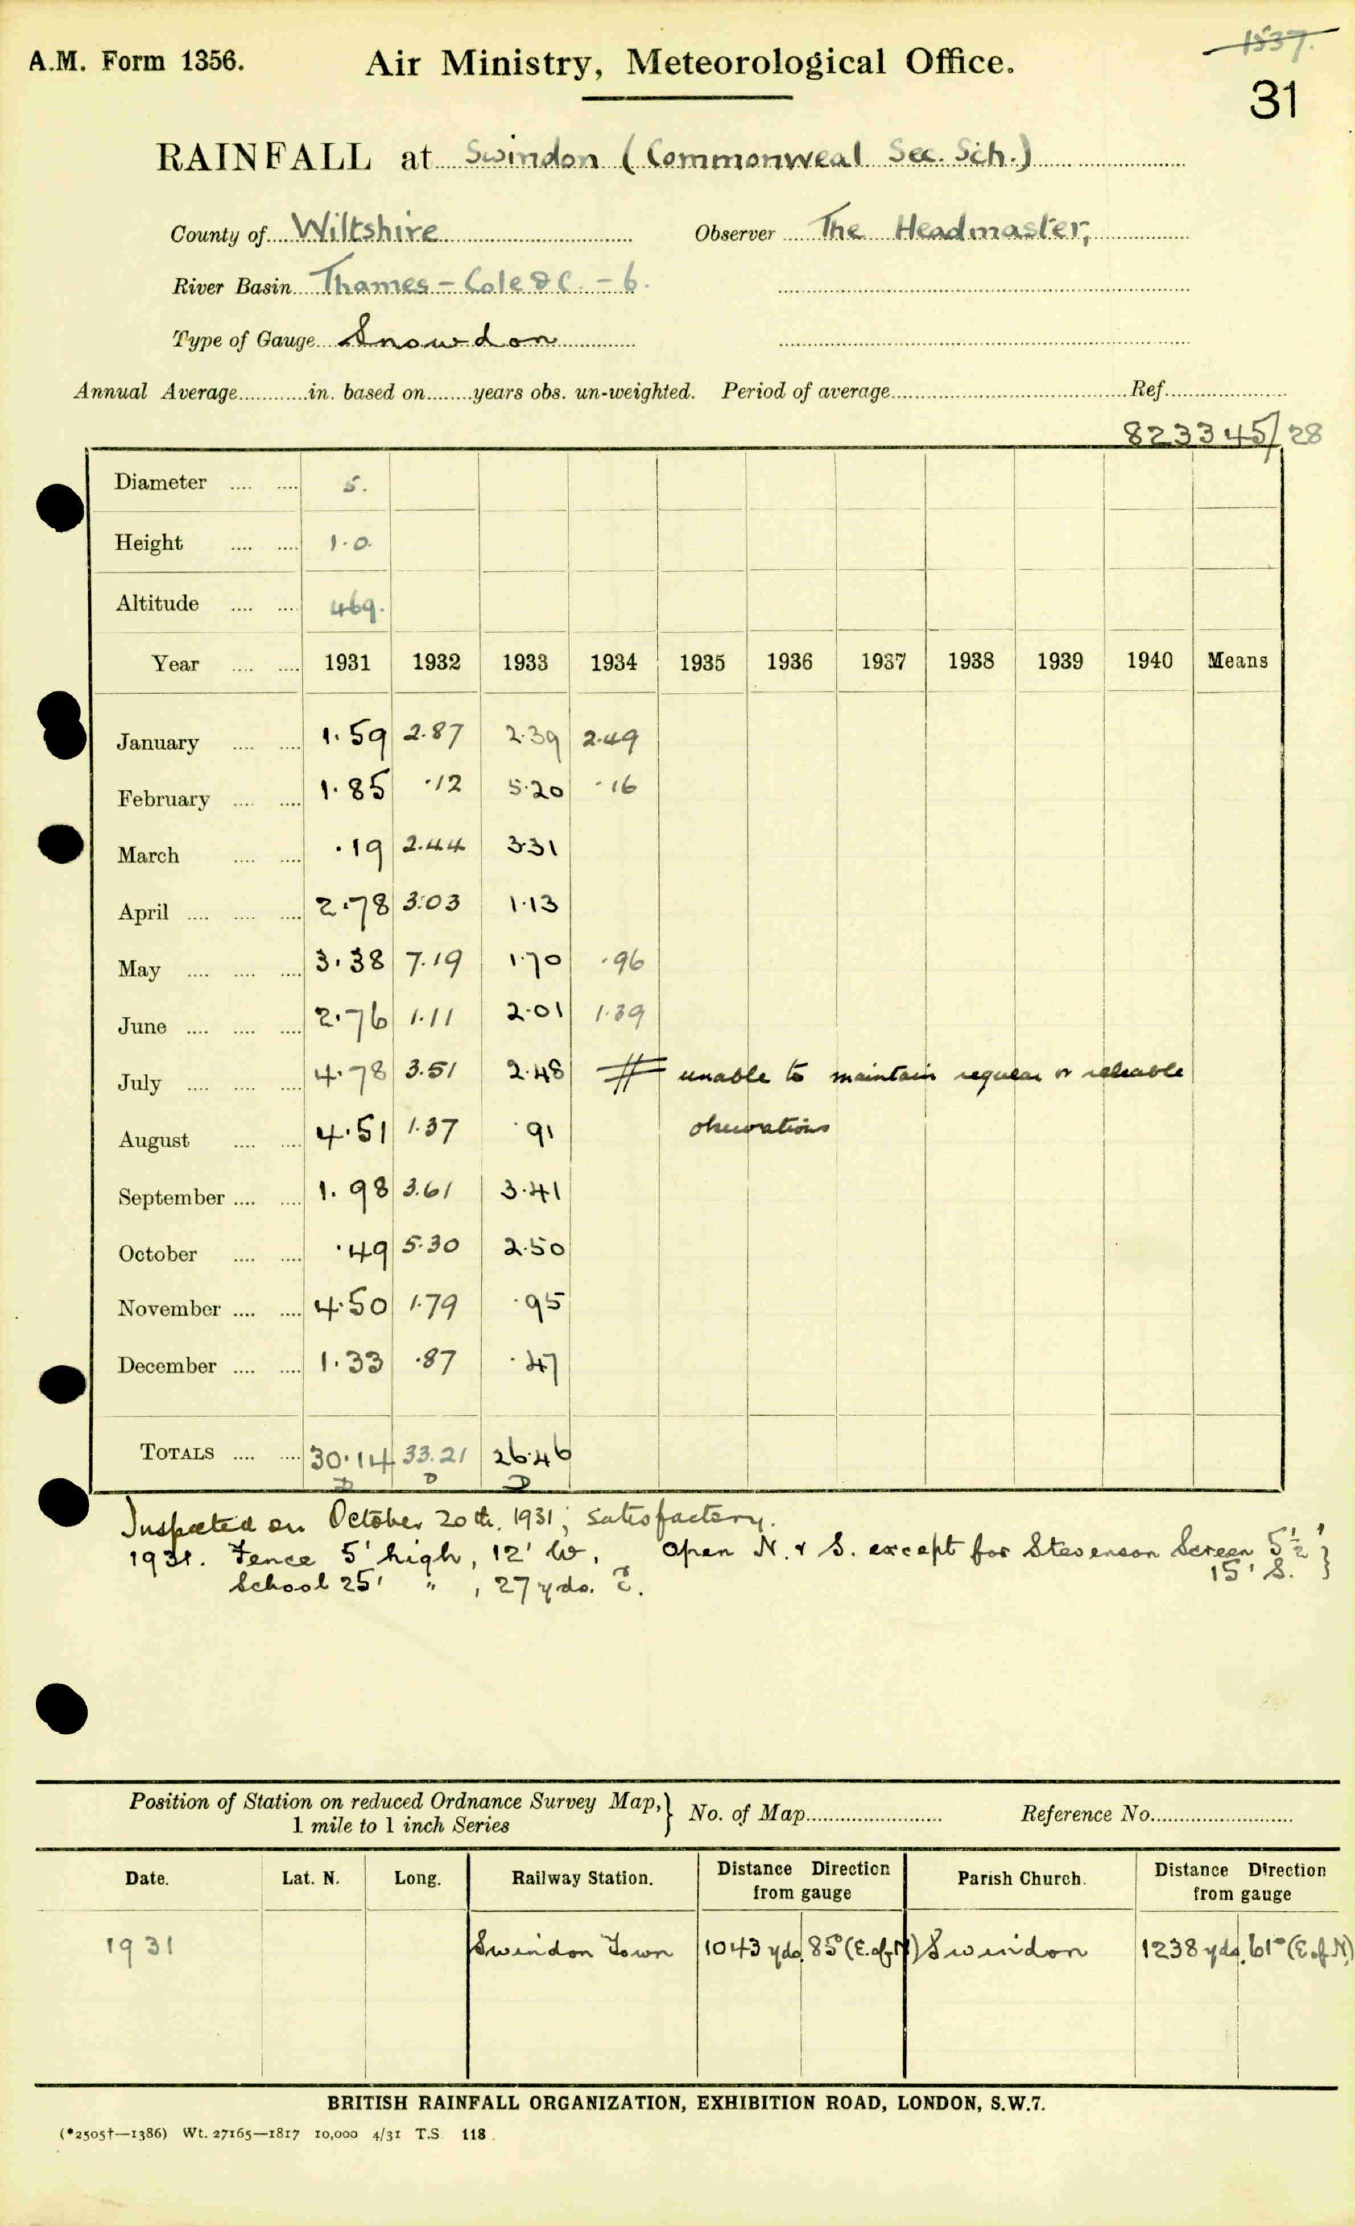 1537.
A.M. Form 1356.
Air Ministry, Meteorological Office.
31
RAINFALL at Swindon (Commonweal Sec. Sch.)
County of Wiltshire Observer The Headmaster,
River Basin Thames - Cole & C. - 6.
Type of Gauge Snowdon
Annual Average............in. based on........years obs. un-weighted. Period of average........................................Ref.....................
823345/28
Diameter .... .... 5.
Height .... .... 1.0.
Altitude .... .... 469.
Year .... .... 1931 1932 1933 1934 1935 1936 1937 1938 1939 1940 Means
January .... .... 1.59 2.87 2.39 2.49
February .... .... 1.85 .12 5.20 .16
March .... .... .19 2.44 3.31
April .... .... .... 2.78 3.03 1.13
May .... .... .... 3.38 7.19 1.70 .96
June .... .... .... 2.76 1.11 2.01 1.39
July .... .... .... 4.78 3.51 2.48 # unable to maintain regular or reliable
August .... .... 4.51 1.37 .91 observations
September .... .... 1.98 3.61 3.41
October .... .... .49 5.30 2.50
November .... .... 4.50 1.79 .95
December .... .... 1.33 .87 .47
TOTALS .... .... 30.14 33.21 26.46
D D D
Inspected on October 20th. 1931; satisfactory.
1931. Fence 5' high, 12' W. Open N. & S. except for Stevenson Screen 5½' }
School 25' " , 27 yds. E. 15' S. }
Position of Station on reduced Ordnance Survey Map, } No. of Map........................ Reference No.........................
1 mile to 1 inch Series
Date. Lat. N. Long. Railway Station. Distance Direction from gauge Parish Church. Distance Direction from gauge
1931 Swindon Town 1043 yds. 85° (E. of N) Swindon 1238 yds. 61° (E. of N.)
BRITISH RAINFALL ORGANIZATION, EXHIBITION ROAD, LONDON, S.W.7.
(*2505†—1386) Wt. 27165—1817 10,000 4/31 T.S. 118